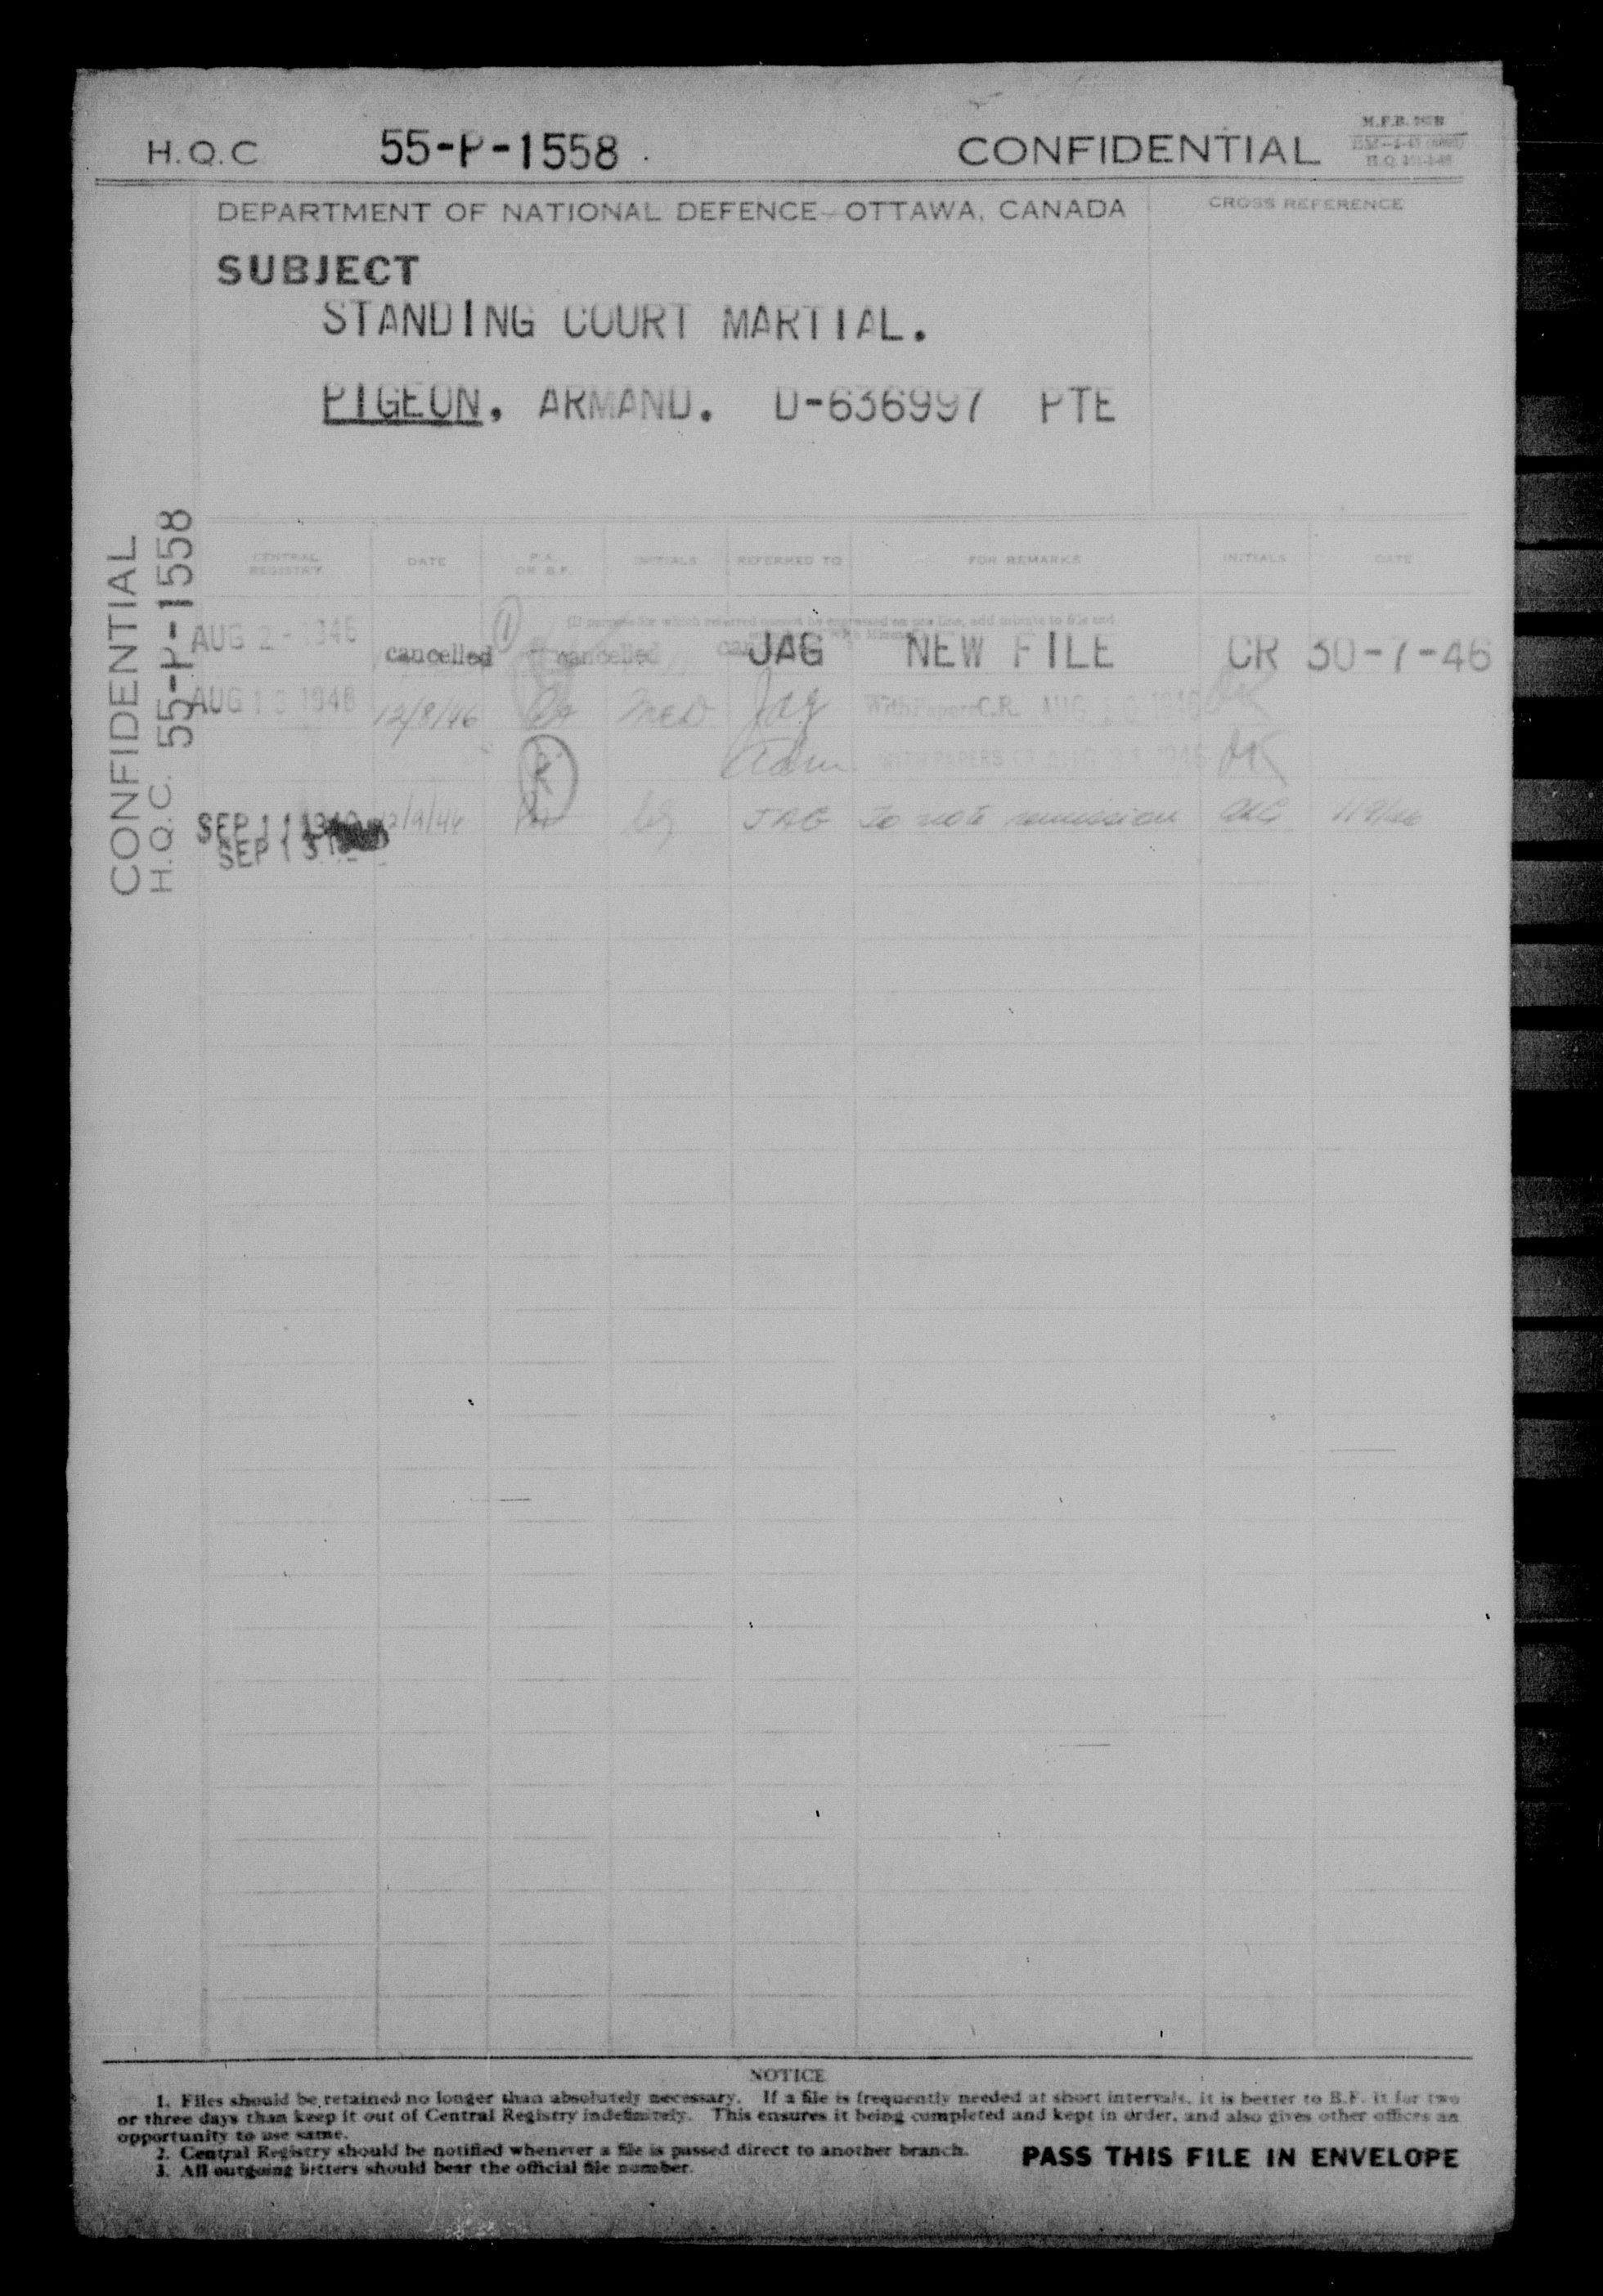 H.Q.C 55-P-1558 CONFIDENTIAL
M.F.B.
DEPARTMENT OF NATIONAL DEFENCE—OTTAWA, CANADA
CROSS REFERENCE
SUBJECT
STANDING COURT MARTIAL.
PIGEON, ARMAND. D-636997 PTE
CONFIDENTIAL
H.Q.C. 55-P-1558
CENTRAL REGISTRY DATE P.A. OR B.F. INITIALS REFERRED TO FOR REMARKS INITIALS DATE
(If purpose for which referred cannot be expressed on one line, add minute to file and
AUG 2 - 1946 cancelled cancelled JAG NEW FILE CR 30-7-46
AUG 13 1946 12/8/46 Jag With Papers C.R. AUG 10 1946
Adm WITH PAPERS
SEP 11 JAG To note remission
SEP 13
NOTICE
1. Files should be retained no longer than absolutely necessary. If a file is frequently needed at short intervals, it is better to B.F. it for two
or three days than keep it out of Central Registry indefinitely. This ensures it being completed and kept in order, and also gives other offices an
opportunity to use same.
2. Central Registry should be notified whenever a file is passed direct to another branch.
3. All outgoing letters should bear the official file number.
PASS THIS FILE IN ENVELOPE